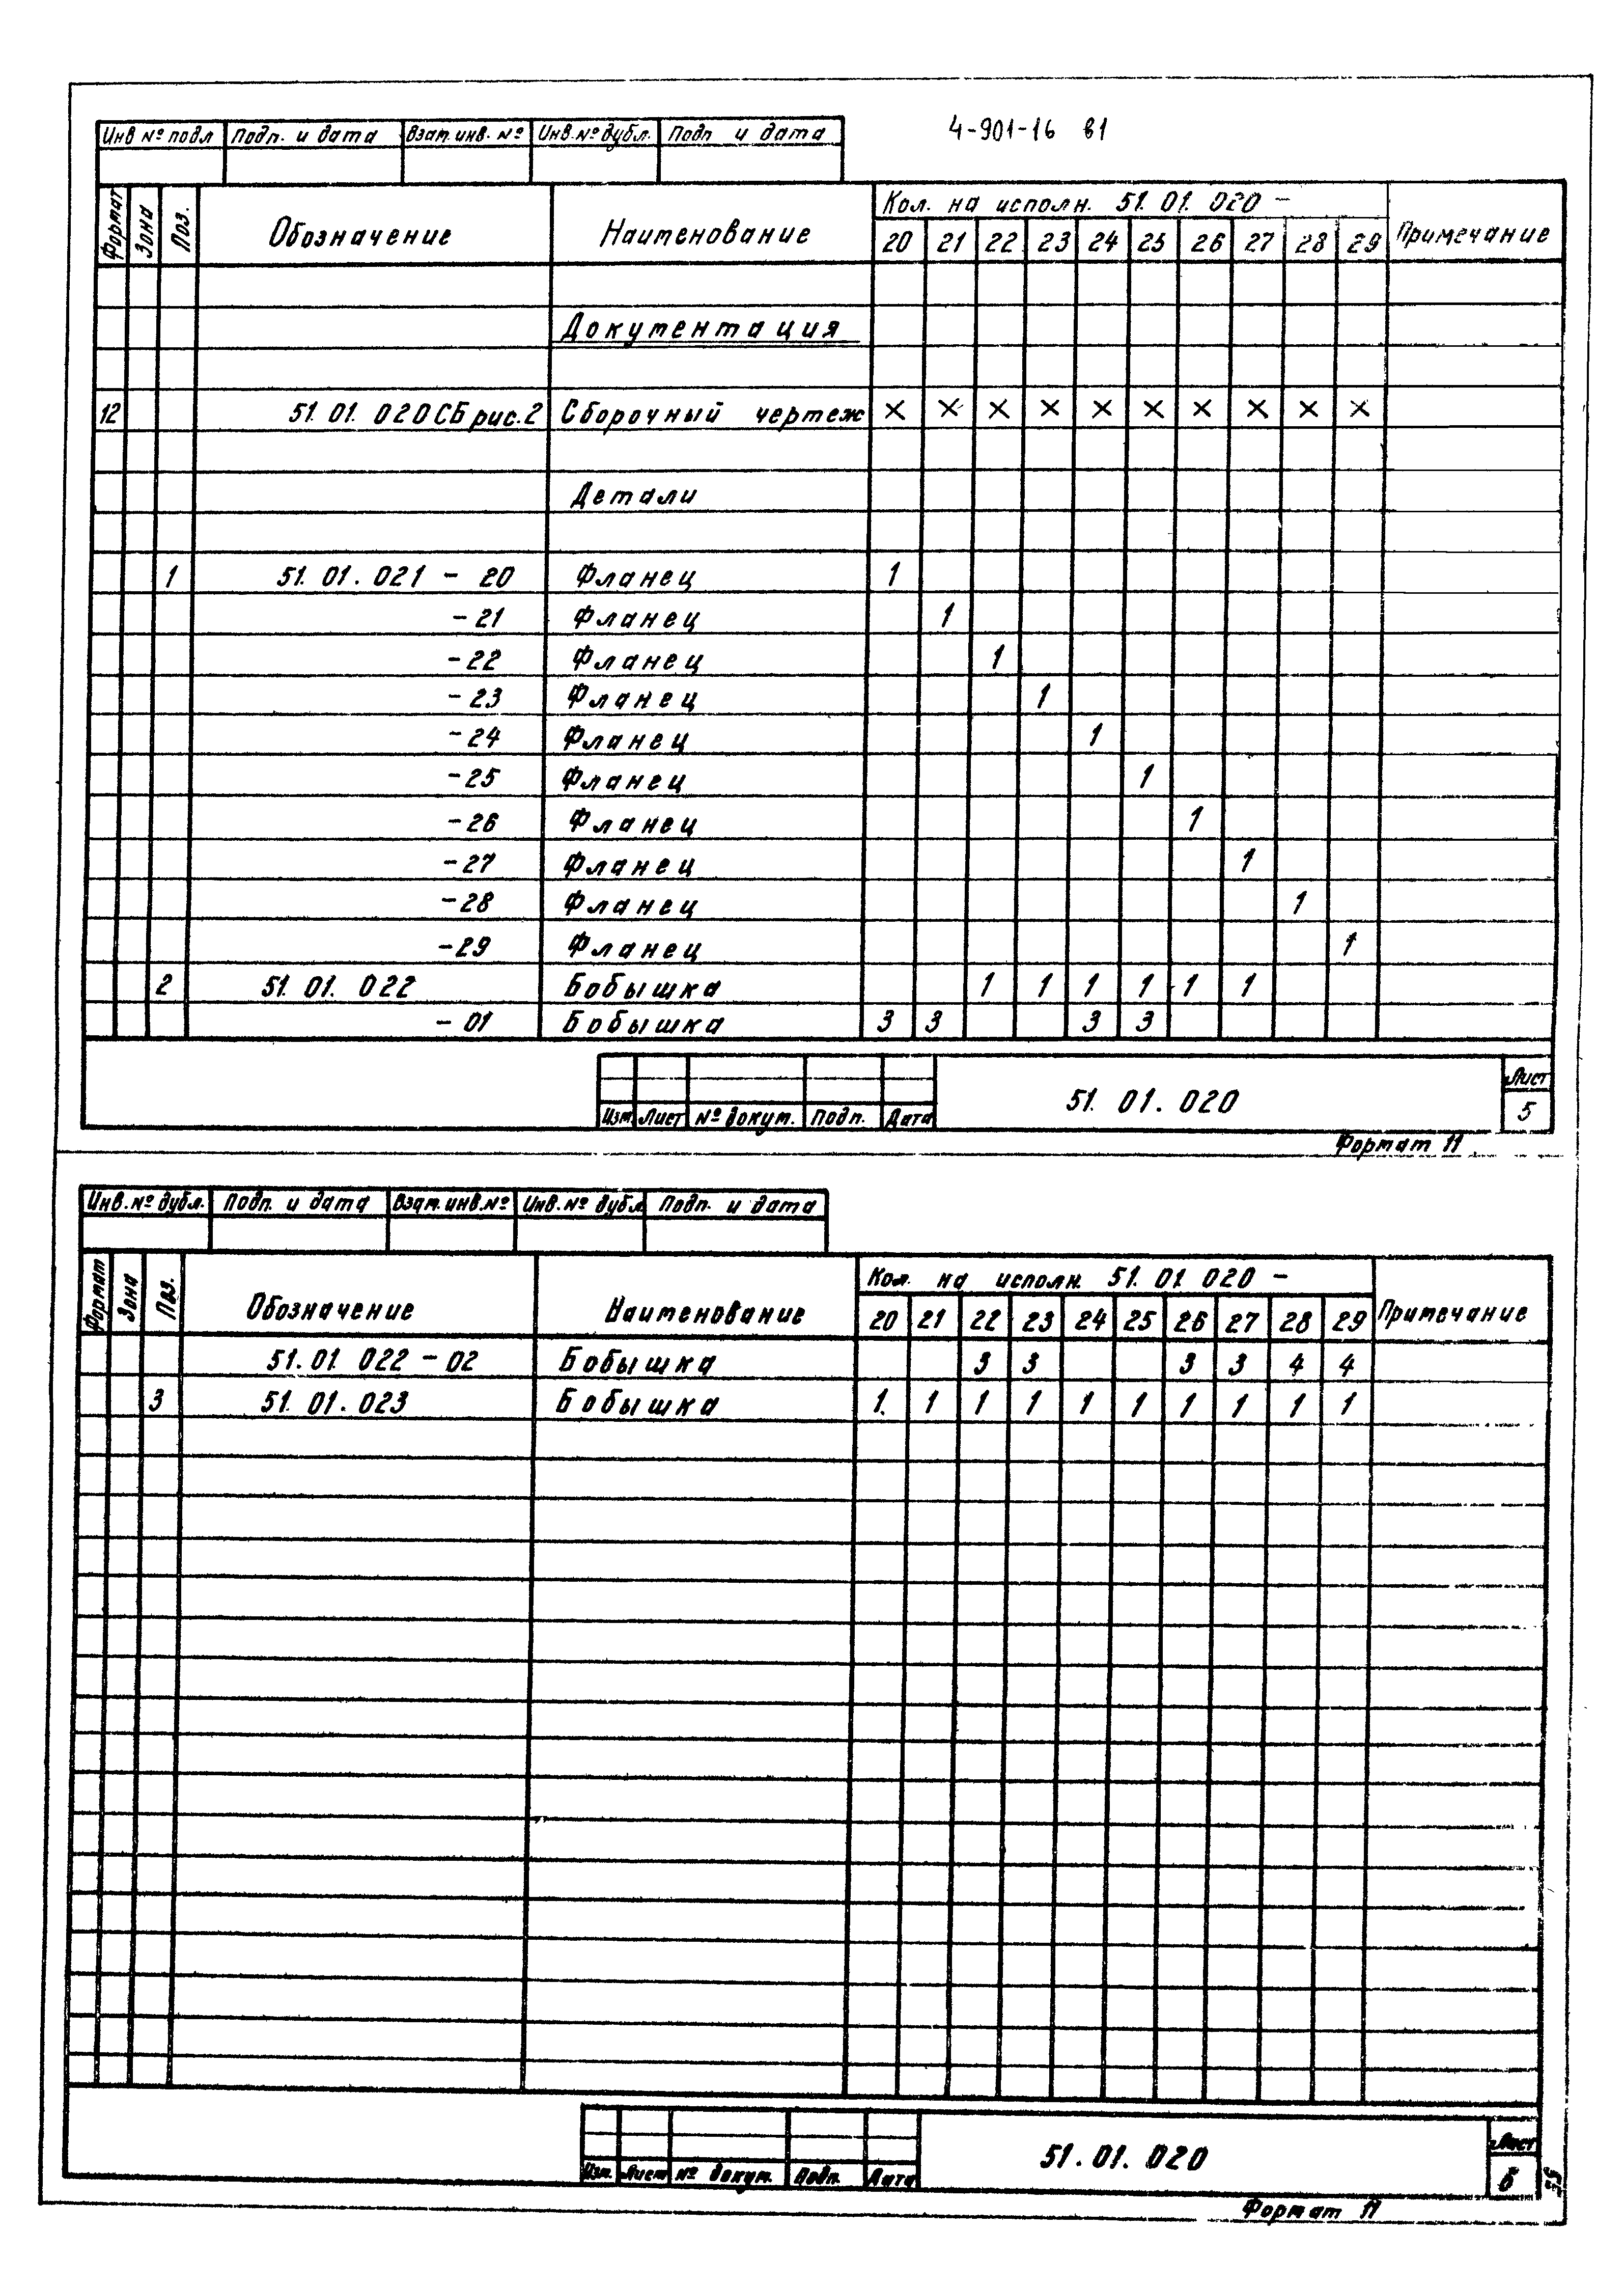 4-901-16 в1
Инв № подл Подп. и дата Взам. инв. № Инв. № дубл. Подп и дата
Формат Зона Поз. Обозначение Наименование Кол. на исполн. 51. 01. 020 – Примечание
20 21 22 23 24 25 26 27 28 29
Документация
12 51. 01. 020СБ рис.2 Сборочный чертеж × × × × × × × × × ×
Детали
1 51. 01. 021 – 20 Фланец 1
– 21 Фланец 1
– 22 Фланец 1
– 23 Фланец 1
– 24 Фланец 1
– 25 Фланец 1
– 26 Фланец 1
– 27 Фланец 1
– 28 Фланец 1
– 29 Фланец 1
2 51. 01. 022 Бобышка 1 1 1 1 1 1
– 01 Бобышка 3 3 3 3
Изм. Лист № докум. Подп. Дата 51. 01. 020 Лист 5
Формат 11
Инв. № дубл. Подп. и дата Взам. инв. № Инв. № дубл. Подп. и дата
Формат Зона Поз. Обозначение Наименование Кол. на исполн. 51. 01. 020 – Примечание
20 21 22 23 24 25 26 27 28 29
51. 01. 022 – 02 Бобышка 3 3 3 3 4 4
3 51. 01. 023 Бобышка 1. 1 1 1 1 1 1 1 1 1
Изм. Лист № докум. Подп. Дата 51. 01. 020 Лист 6
Формат 11